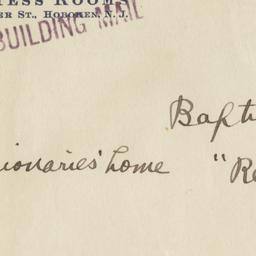 ESS ROOMS
ER ST., HOBOKEN, N. J.
BUILDING MAIL
Bapti
ionaries' home "Re